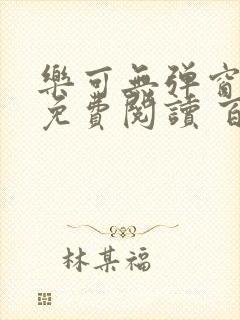 樂可無弹窗
免費閱讀 百
林某福